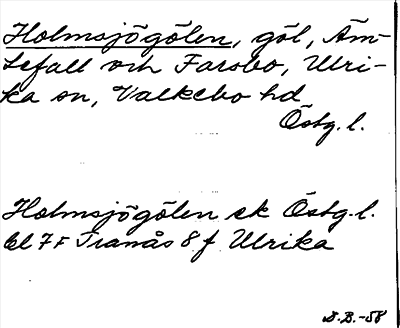 Holmsjögölen, göl, Äm-
tefall och Farsbo, Ulri-
ka sn, Valkebo hd
Östg. l.
Holmsjögölen ek Östg. l.
bl 7F Tranås 8 f Ulrika
S.B.-58